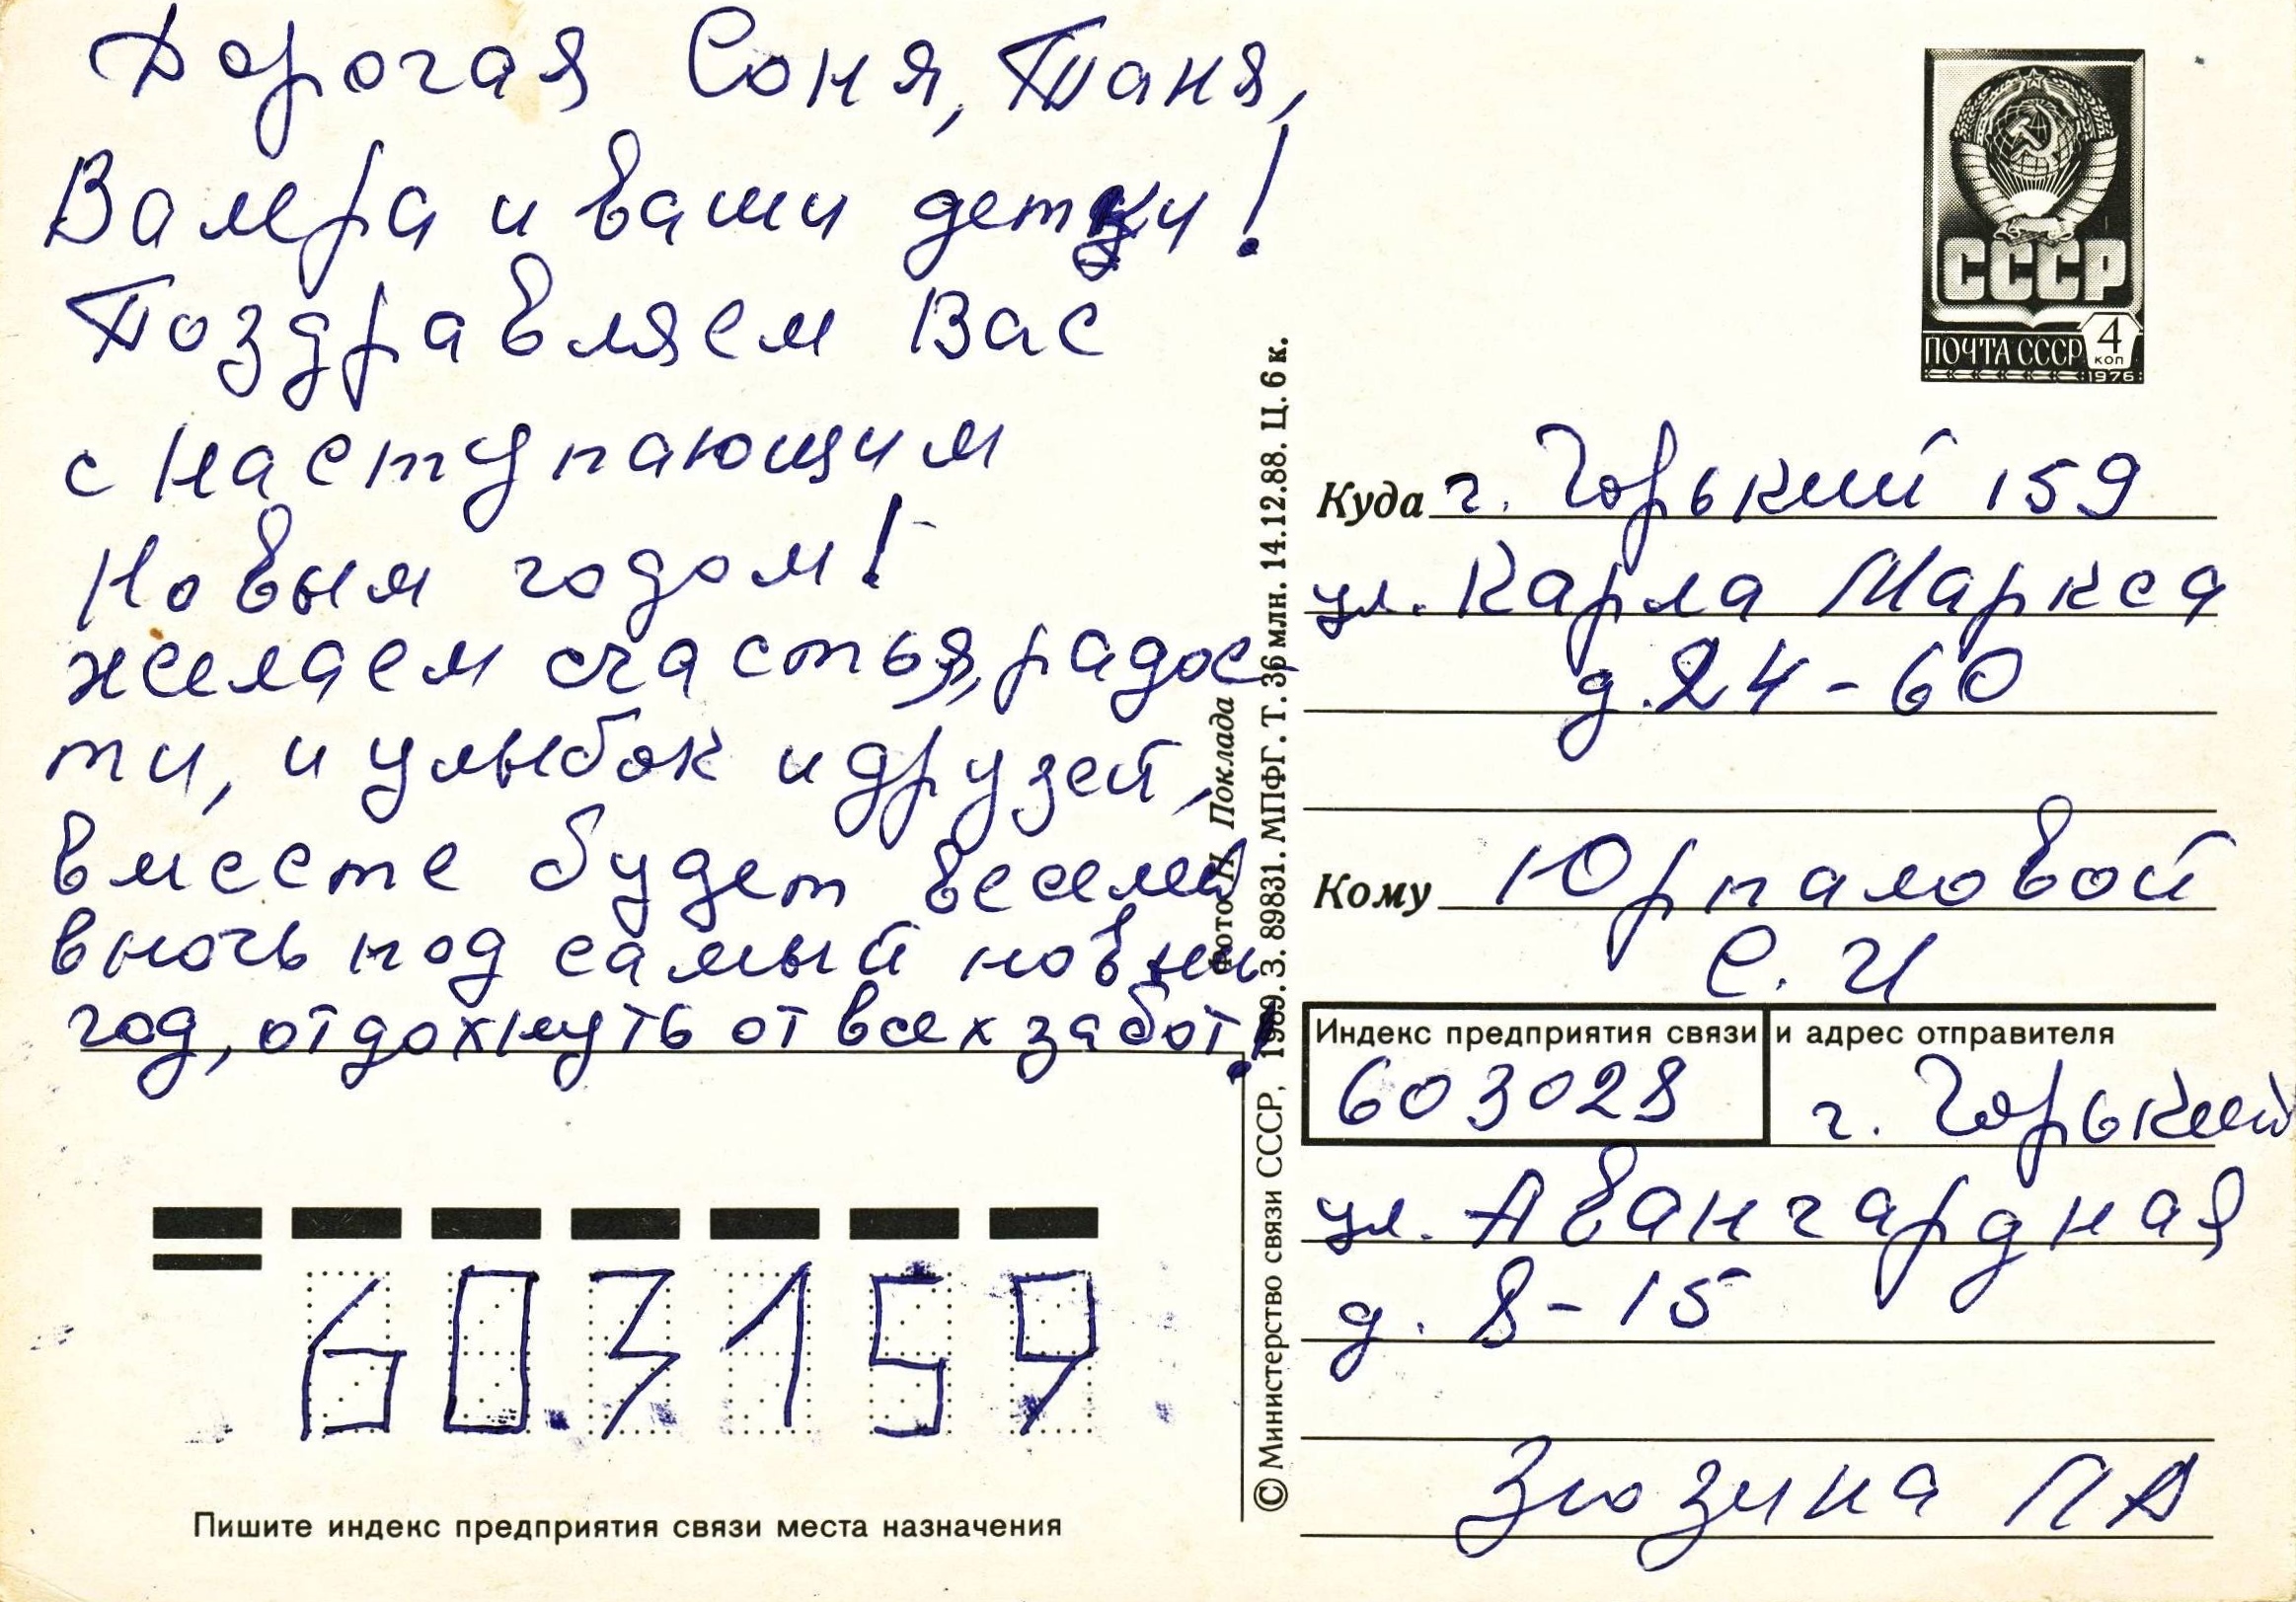 Дорогая Соня, Таня,
Валера и ваши детки!
Поздравляем Вас
с Наступающим
Новым годом!
желаем счастья, радос-
ти, и улыбок и друзей,
вместе будет веселей
в ночь под самый новый
год, отдохнуть от всех забот!
603159
Пишите индекс предприятия связи места назначения
Фото Н. Поклада
© Министерство связи СССР, 1989. З. 89831. МПФГ. Т. 36 млн. 14.12.88. Ц. 6 к.
СССР
ПОЧТА СССР 4 КОП
1976
Куда г. Горький 159
ул. Карла Маркса
д. 24-60
Кому Юрпаловой
С. И
Индекс предприятия связи и адрес отправителя
603028 г. Горький
ул. Авангардная
д. 8-15
Зюзина ПА